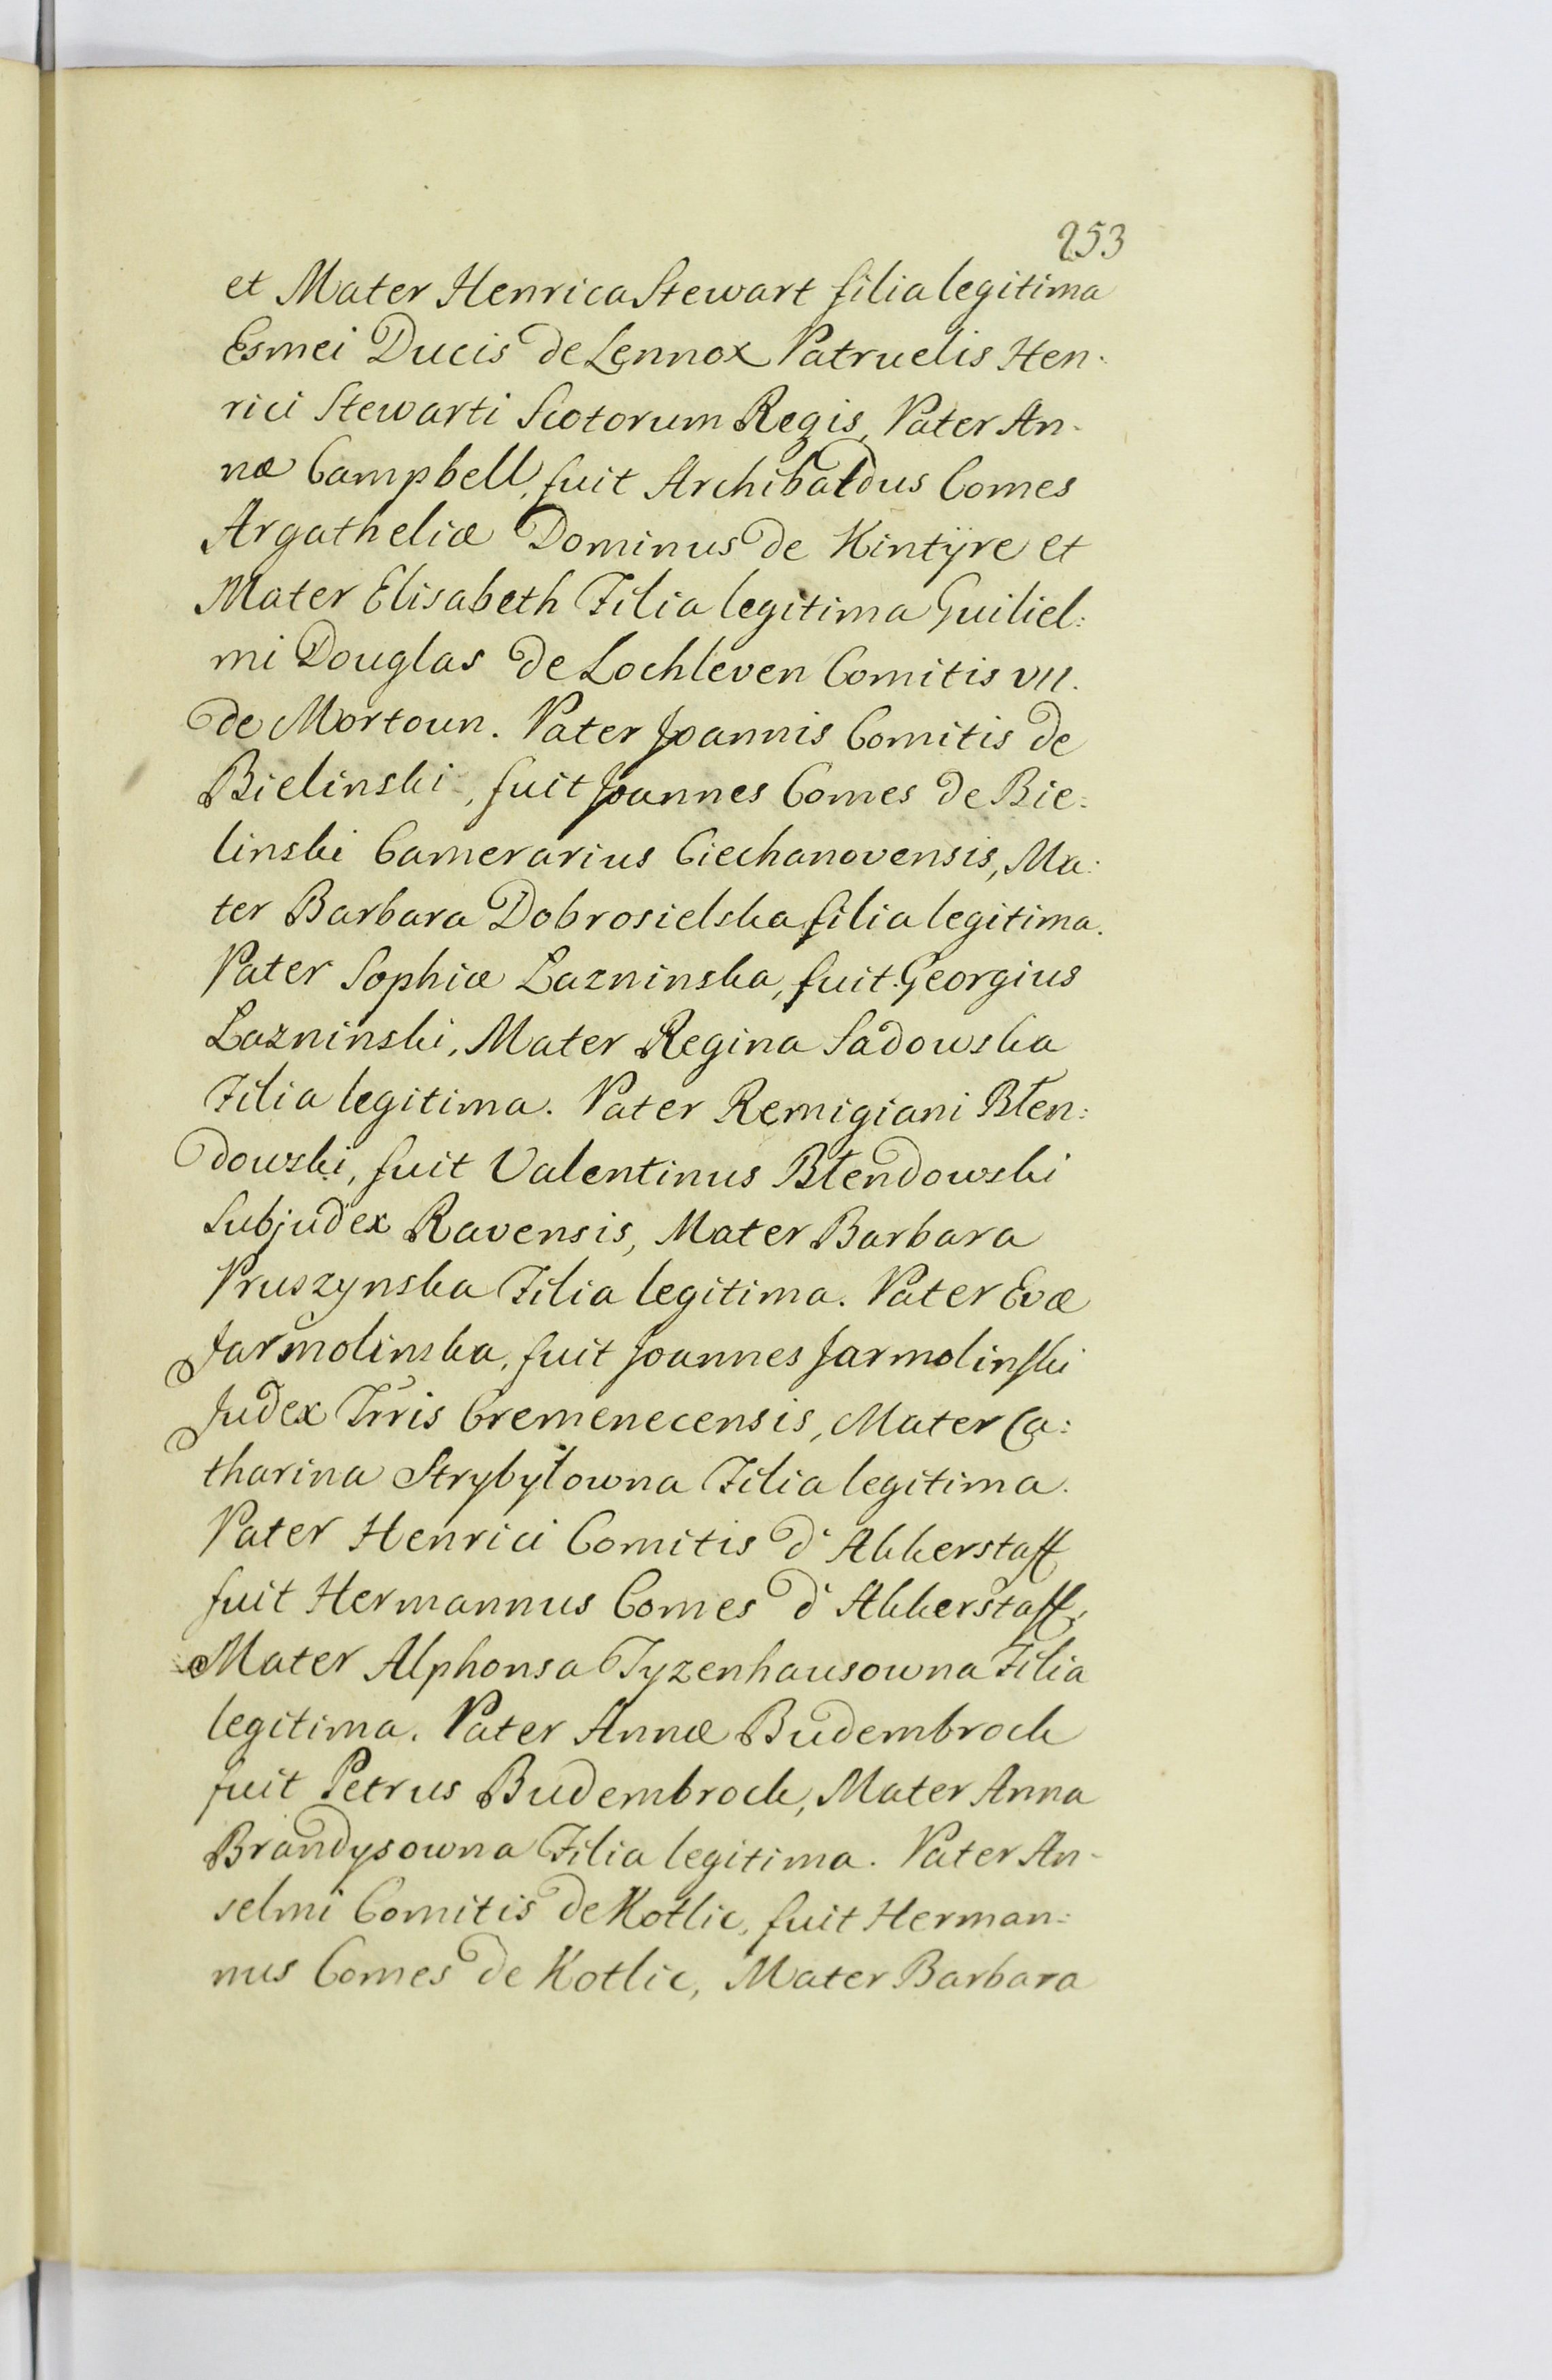 253
et Mater Henrica Stewart filia legitima
Esmei Ducis de Lennox Patruelis Hen-
rici Stewarti Scotorum Regis, Pater An-
næ Campbell, fuit Archibaldus Comes
Argatheliæ Dominus de Kintÿre et
Mater Elisabeth Filia legitima Guiliel:
mi Douglas de Lochleven Comitis VII.
de Mortoun. Pater Joannis Comitis de
Bielinski, fuit Joannes Comes de Bie:
linski Camerarius Ciechanovensis, Ma:
ter Barbara Dobrosielska filia legitima.
Pater Sophiæ Lazninska, fuit Georgius
Lazninski, Mater Regina Sadowska
Filia legitima. Pater Remigiani Błen:
dowski, fuit Valentinus Błendowski
Subjudex Ravensis, Mater Barbara
Pruszynska Filia legitima. Pater Evæ
Jarmolinska, fuit Joannes Jarmolinski
Judex Trris Cremenecensis, Mater Ca:
tharina Strybyłowna Filia legitima.
Pater Henrici Comitis d'Akkerstaff
fuit Hermannus Comes d'Akkerstaff,
Mater Alphonsa Tyzenhausowna Filia
legitima. Pater Annæ Budembrock
fuit Petrus Budembrock, Mater Anna
Brandysowna Filia legitima. Pater An-
selmi Comitis de Kotlic, fuit Herman:
nus Comes de Kotlic, Mater Barbara